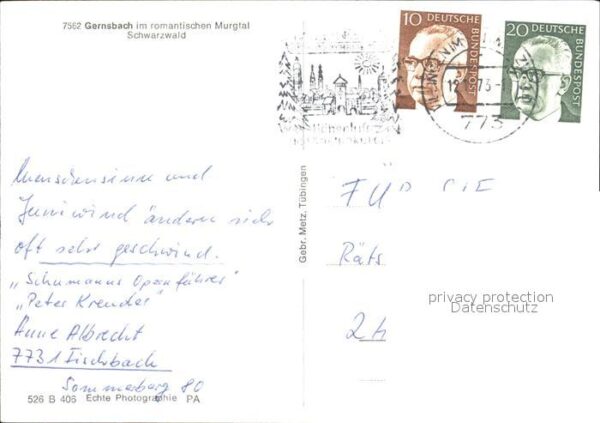 7562 Gernsbach im romantischen Murgtal
Schwarzwald
10
DEUTSCHE
BUNDESPOST
20
DEUTSCHE
BUNDESPOST
VILLINGEN IM
773
Menschensinn und
Juniwind ändern sich
oft sehr geschwind.
„Schumanns Opernführer"
„Peter Kreuder"
Anne Albrecht
7731 Fischbach
Sommerberg 80
526 B 406 Echte Photographie PA
Gebr. Metz, Tübingen
FÜR DIE
Räts
2h
privacy protection
Datenschutz